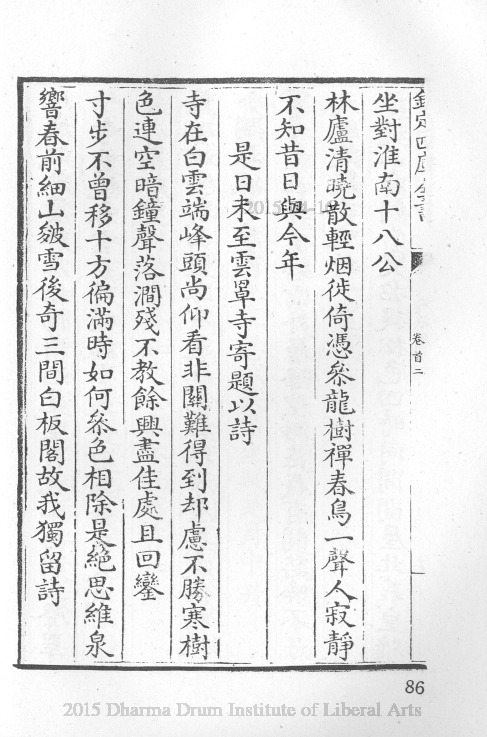 欽定四庫全書
卷首二
坐對淮南十八公
林廬清曉散輕烟徙倚憑參龍樹禪春鳥一聲人寂靜
不知昔日與今年
是日未至雲罩寺寄題以詩
寺在白雲端峰頭尚仰看非關難得到却慮不勝寒樹
色連空暗鐘聲落澗殘不教餘興盡佳處且回鑾
寸步不曾移十方徧滿時如何叅色相除是絶思維泉
響春前細山皴雪後奇三間白板閣故我獨留詩
86
2015 Dharma Drum Institute of Liberal Arts